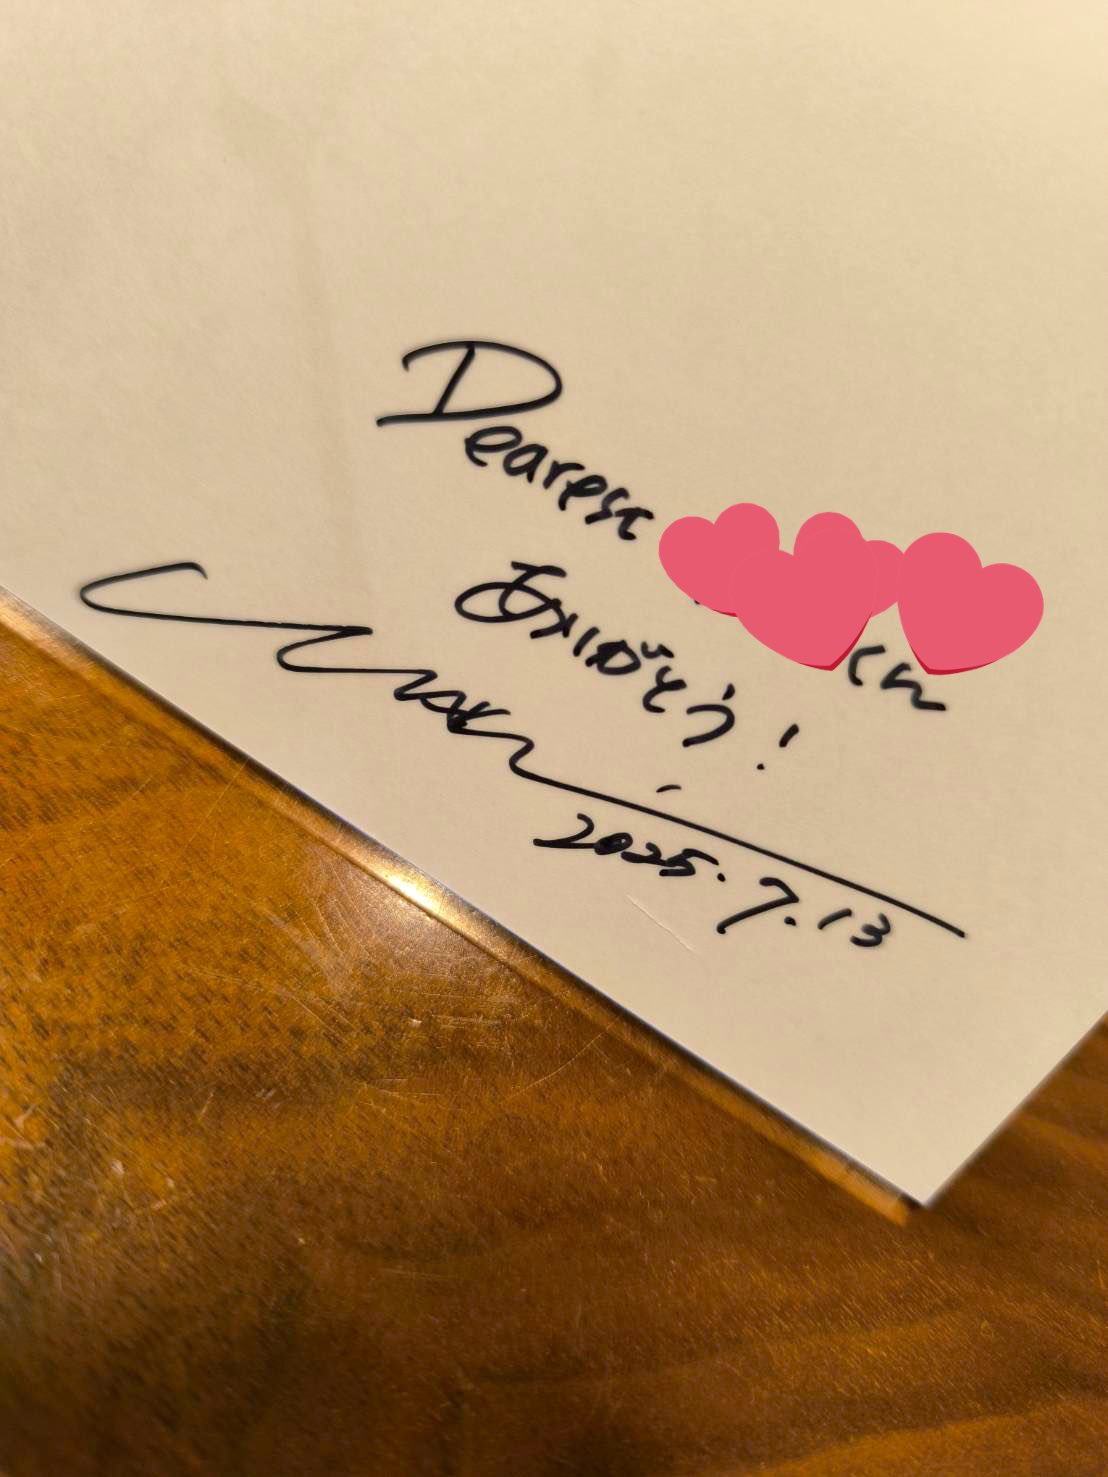 Dearest くん
ありがとう!
2025.7.13